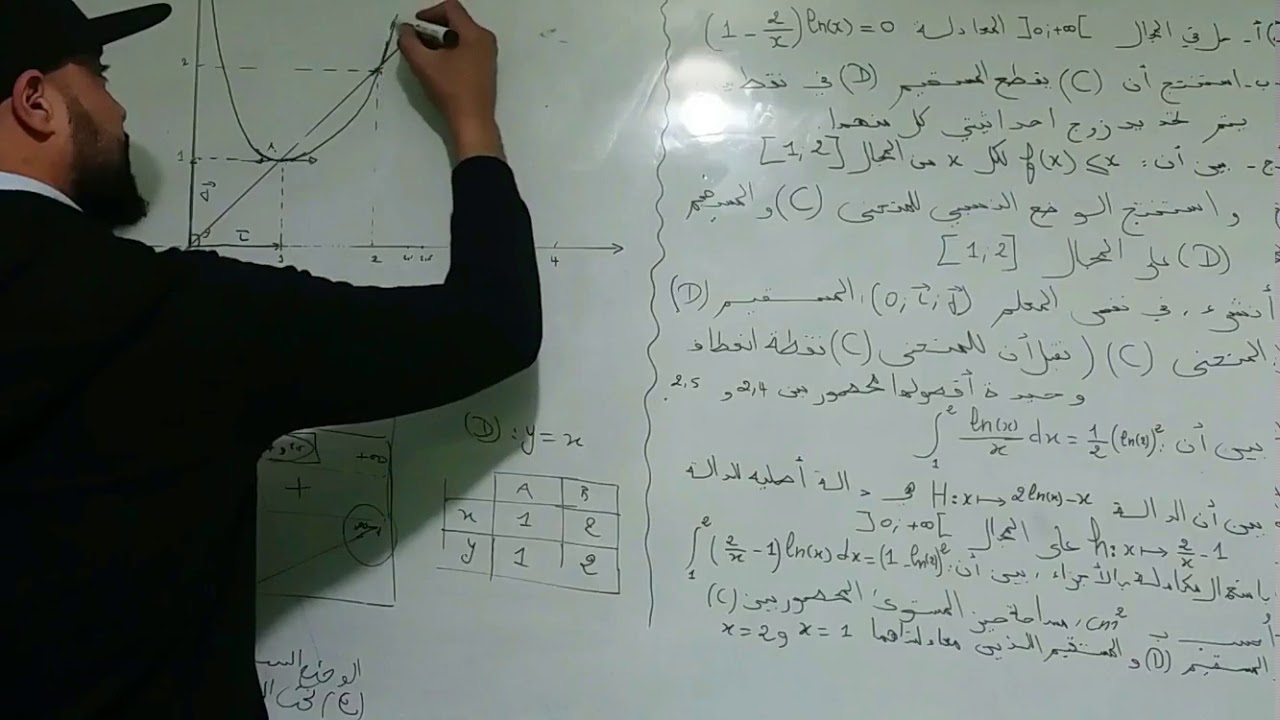 أ - حل في المجال ]0;+∞[ المعادلة (1 - 2/x) ln(x) = 0
ب - استنتج أن (C) يقطع المستقيم (D) في نقطتين
يتم تحديد زوج احداثيتي كل منهما.
ج - بين أن: f(x) ≤ x لكل x من المجال [1,2]
و استنتج الوضع النسبي للمنحنى (C) و المستقيم
(D) على المجال [1,2]
أنشئ، في نفس المعلم (O,i⃗,j⃗)، المستقيم (D)
المنحنى (C) (نقبل أن للمنحنى (C) نقطة انعطاف
وحيدة أفصولها محصور بين 2,4 و 2,5.
بين أن: ∫₁² ln(x)/x dx = 1/2 (ln(2))²
بين أن الدالة H: x ↦ 2ln(x) - x هي دالة أصلية للدالة
h: x ↦ 2/x - 1 على المجال ]0;+∞[
باستعمال مكاملة بالأجزاء، بين أن: ∫₁² (2/x - 1) ln(x) dx = (1 - ln(2))²
أحسب ب cm²، مساحة حيز المستوى المحصور بين (C)
المستقيم (D) و المستقيمين الذين معادلتاهما x = 1 و x = 2
2
1
A
j⃗
i⃗
1
2
4
(D): y = x
A B
x 1 2
y 1 2
+∞
+
الوضع
(C) تحت